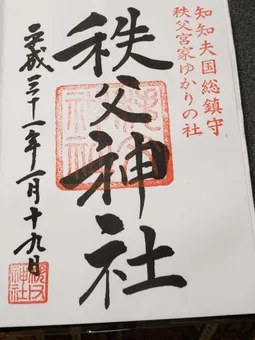 知知夫国総鎮守
秩父宮家ゆかりの社
秩父神社
平成三十一年一月十九日